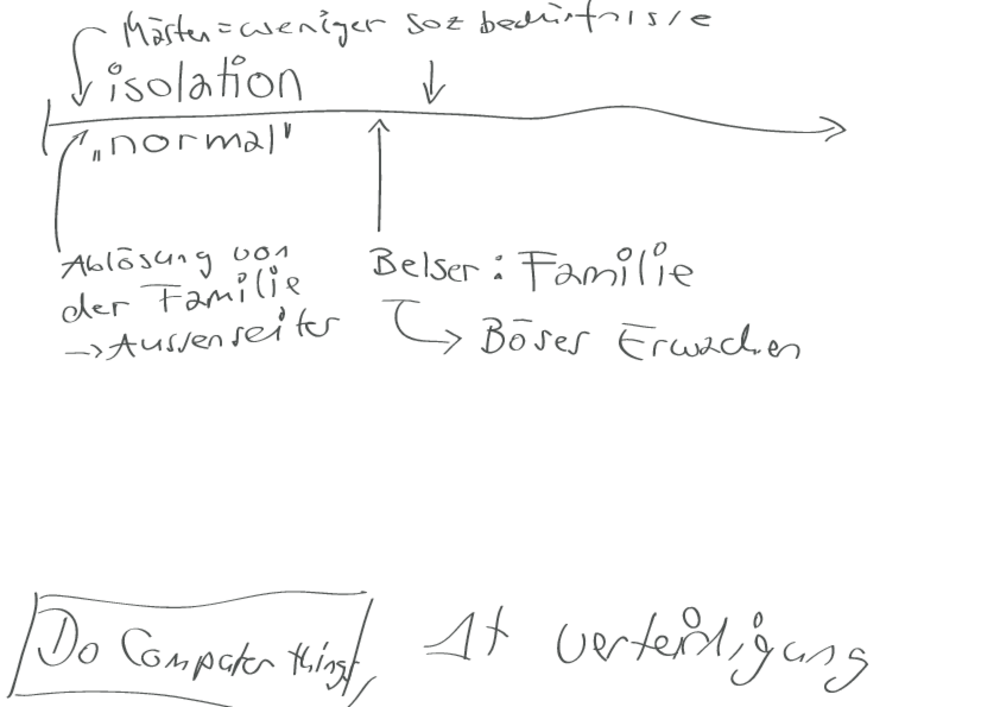 Mästen = weniger soz bedürfnisse
isolation
"normal"
Ablösung von
der Familie
→ Aussenseiter
Belser: Familie
→ Böses Erwachen
Do Computer things,
1t verteidigung